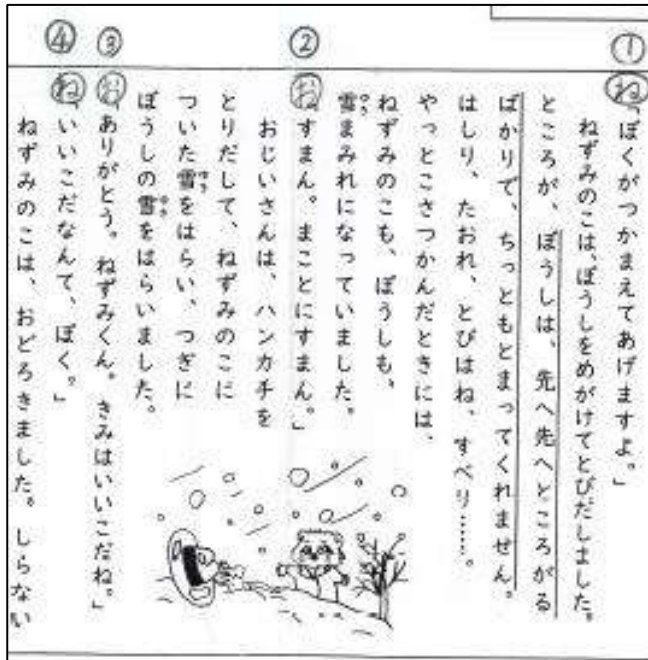 ① ね「ぼくがつかまえてあげますよ。」
ねずみのこは、ぼうしをめがけてとびだしました。
ところが、ぼうしは、先へ先へところがる
ばかりで、ちっともとまってくれません。
はしり、たおれ、とびはね、すべり……。
やっとこさつかんだときには、
ねずみのこも、ぼうしも、
雪まみれになっていました。
② お「すまん。まことにすまん。」
おじいさんは、ハンカチを
とりだして、ねずみのこに
ついた雪をはらい、つぎに
ぼうしの雪をはらいました。
③ お「ありがとう。ねずみくん。きみはいいこだね。」
④ ね「いいこだなんて、ぼく。」
ねずみのこは、おどろきました。しらない